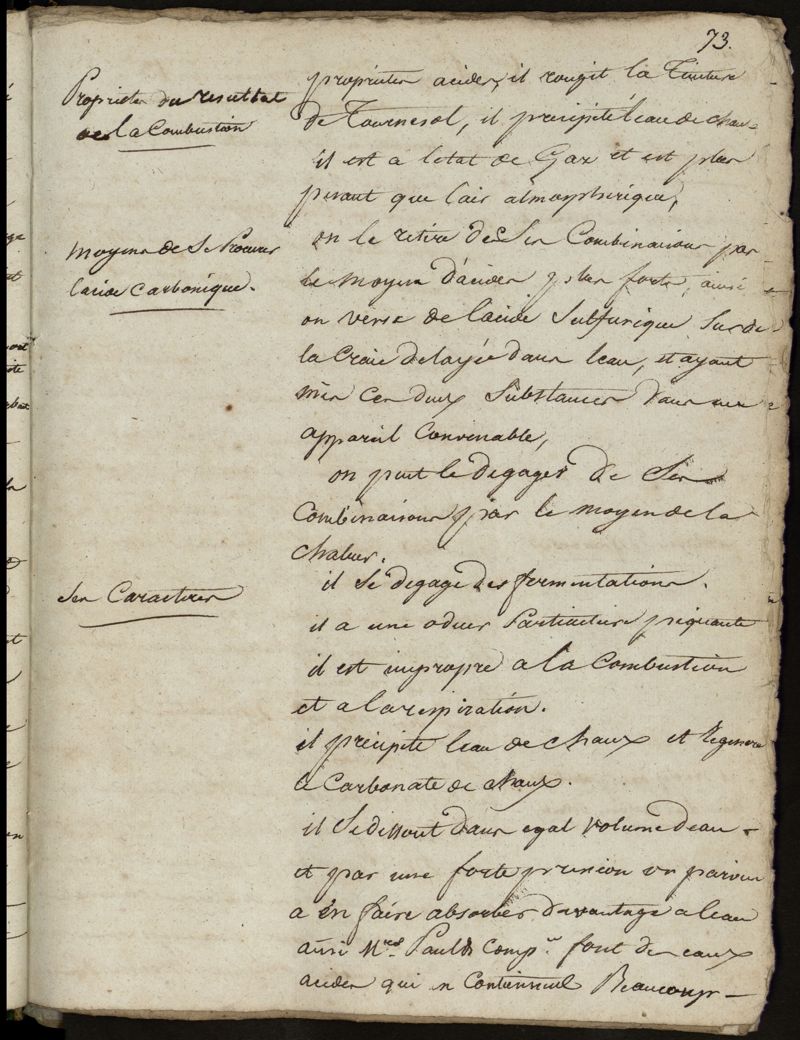 73.
Proprietes du resultat
de la Combustion
proprietes acides, il rougit la Teinture
de Tournesol, il precipité leau de chau-
il est a letat de Gaz et est plus
pesant que lair atmospherique,
moyens de Se Procurer
lacide Carbonique.
on le retire de Ses Combinaisons par
le moyen d'acides plus forts, ainsi
on verse de lacide Sulfurique Sur de
la Craie delayée dans leau, et ayant
mis Ces deux Substances dans un
appareil Convenable,
on peut le degager de Ses
Combinaisons par le moyen de la
chaleur.
il Se degage des fermentations.
Ses Caracteres
il a une odeur Particuliere piquante
il est impropre a la Combustion
et a la respiration.
il precipite leau de chaux et Regenere
le Carbonate de chaux.
il Se dissout dans egal volume deau
et par une forte pression on parvient
a en faire absorber davantage a leau
ainsi Mrs Paul & Comp.e font des eaux
acides qui en Contiennent Beaucoup-